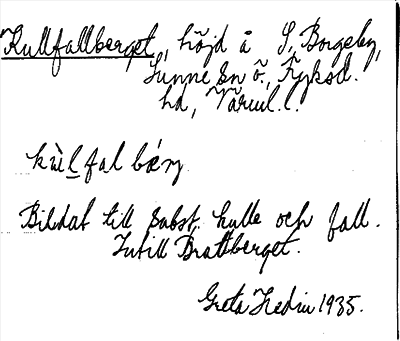 Kullfallberget, höjd å S. Borgeby,
Sunne sn ö., Fryksd.
hd, Värml. l.
kùl fal bærj
Bildat till subst. kulle och fall.
Intill Brattberget.
Greta Hedin 1935.